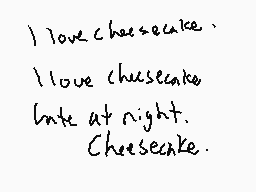 I love cheesecake.
I love cheesecake
late at night.
Cheesecake.